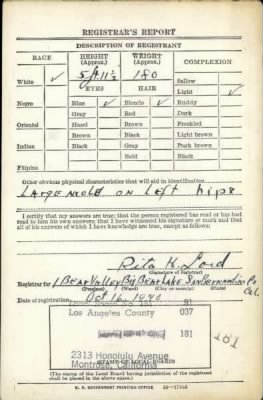 REGISTRAR'S REPORT
DESCRIPTION OF REGISTRANT
RACE HEIGHT (Approx.) WEIGHT (Approx.) COMPLEXION
White ✓ 5 ft 11 ½ 180 Sallow
EYES HAIR Light ✓
Negro Blue ✓ Blonde ✓ Ruddy
Gray Red Dark
Oriental Hazel Brown Freckled
Brown Black Light brown
Indian Black Gray Dark brown
Bald Black
Filipino
Other obvious physical characteristics that will aid in identification
Large mole on left hips
I certify that my answers are true; that the person registered has read or has had
read to him his own answers; that I have witnessed his signature or mark and that
all of his answers of which I have knowledge are true, except as follows:
Rita K. Lord
(Signature of registrar)
Registrar for 1 Bear Valley Big Bear Lake San Bernardino Co Cal.
(Precinct) (Ward) (City or county) (State)
Date of registration Oct 16 1940
81
Los Angeles County 037
181
181
2313 Honolulu Avenue
STAMP OF LOCAL BOARD
Montrose, California
(The stamp of the Local Board having jurisdiction of the registrant
shall be placed in the above space.)
U. S. GOVERNMENT PRINTING OFFICE 16—17105